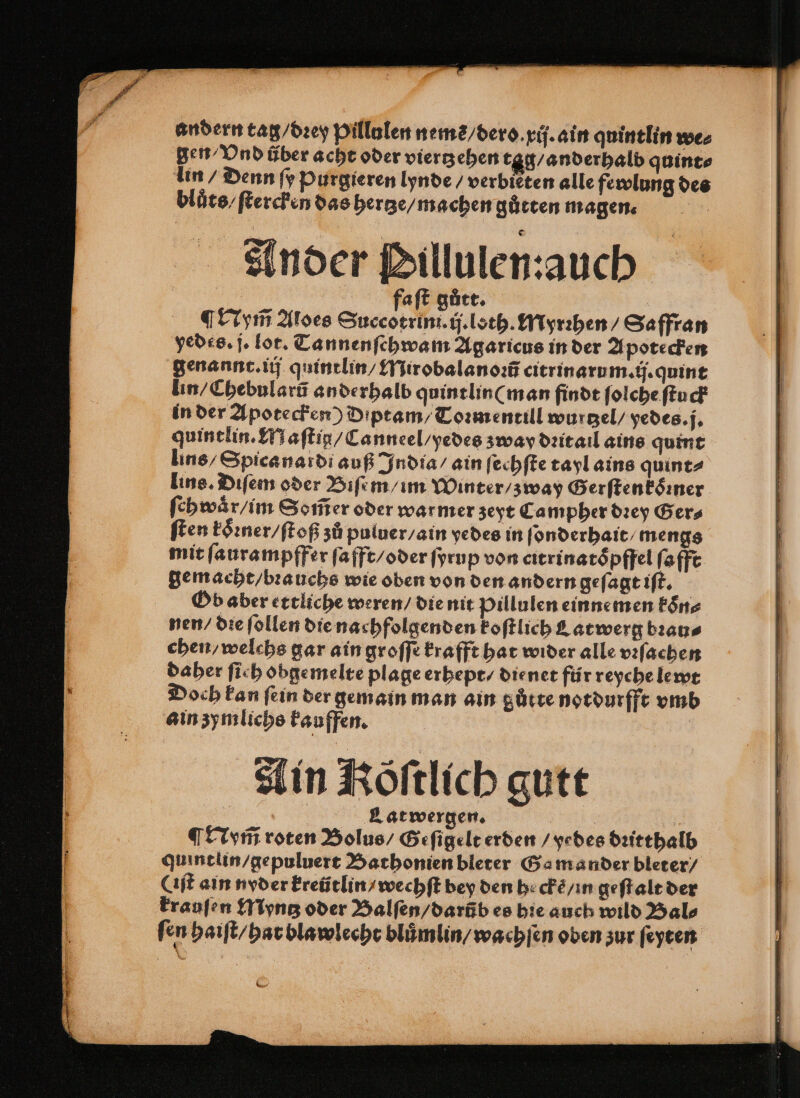 andern tag/dꝛey Pillulen nemẽ/dero.xij.ain quintlin we⸗
gen/Vnd über acht oder viertzehen tag/anderhalb quint⸗
lin / Denn ſy Purgieren lynde / verbieten alle fewlung des
blůts/ſtercken das hertze/machen gůtten magen.
Ander Pillulen:auch
faſt gůtt.
¶Nym̃ Aloes Succotrini.ij.loth.Myrꝛhen / Saffran
yedes.j. lot. Tannenſchwam Agaricus in der Apotecken
genannt.iij quintlin/Mirobalanoꝛũ citrinarum.ij.quint
lin/Chebularũ anderhalb quintlin(man findt ſolche ſtuck
in der Apotecken) Diptam/Toꝛmentill wurtzel/ yedes.j.
quintlin.Maſtix/Canneel/yedes zway dꝛitail ains quint
lins/Spicanardi auß India/ ain ſechſte tayl ains quint⸗
lins. Diſem oder Biſem/im Winter/zway Gerſtenkoͤꝛner
ſchwaͤr/im Som̃er oder warmer zeyt Campher dꝛey Ger⸗
ſten koͤꝛner/ſtoß zů puluer/ain yedes in ſonderhait/mengs
mit ſaurampffer ſafft/oder ſyrup von citrinatoͤpffel ſafft
gemacht/bꝛauchs wie oben von den andern geſagt iſt.
Ob aber ettliche weren/ die nit Pillulen einnemen koͤn⸗
nen/ die ſollen die nachfolgenden koſtlich Latwerg bꝛau⸗
chen/welchs gar ain groſſe krafft hat wider alle vꝛſachen
daher ſich obgemelte plage erhept/ dienet für reyche lewt
Doch kan ſein der gemain man ain gůtte notdurfft vmb
ain zymlichs kauffen.
Ain Köſtlich gutt
Latwergen.
¶Nym̃ roten Bolus/ Geſigelt erden / yedes dꝛitthalb
quintlin/gepuluert Bathonien bleter Gamander bleter/
(iſt ain nyder kreütlin/wechſt bey den heckẽ/in geſtalt der
krauſen Myntz oder Balſen/darũb es hie auch wild Bal⸗
ſen haiſt/hat blawlecht blůmlin/wachſen oben zur ſeyten